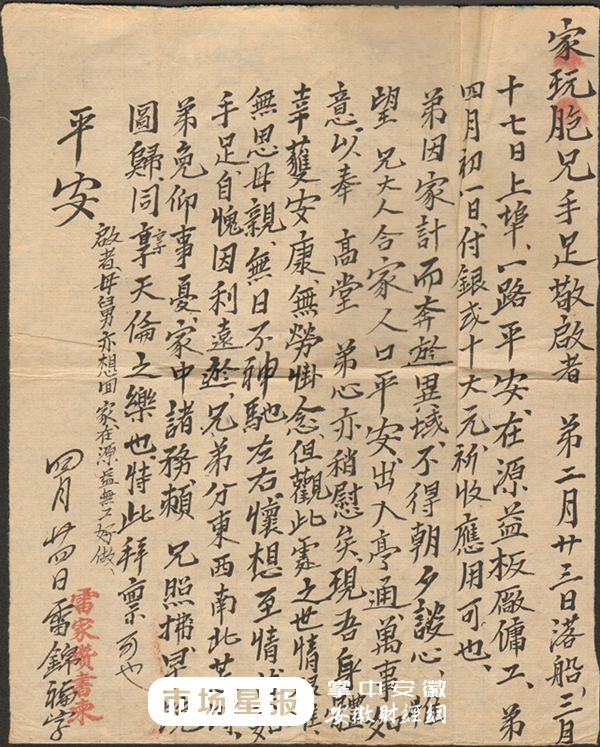 家玩胞兄手足敬啟者 弟二月廿三日落船、三月
十七日上埠、一路平安、在源益板廠傭工、弟
四月初一日、付銀弍十大元、祈收應用可也、
弟因家計而奔於異域、不得朝夕談心、
望 兄大人合家人口平安、出入亨通、萬事如
意、以奉 高堂 弟心亦稍慰矣、現吾身體
幸獲安康、無勞掛念、但觀此處之世情
無思母親、無日不神馳左右、懷想至情、
手足、自愧因利遠遊、兄弟分東西南北
弟免仰事憂、家中諸務賴 兄照拂、早
圖歸、同享天倫之樂也、特此拜禀 可也
平安
啟者、母舅亦想回家、在源益無工好做、
四月廿四日 雷錦 字
雷家 書柬
市场星报
掌中安徽
安徽财经網